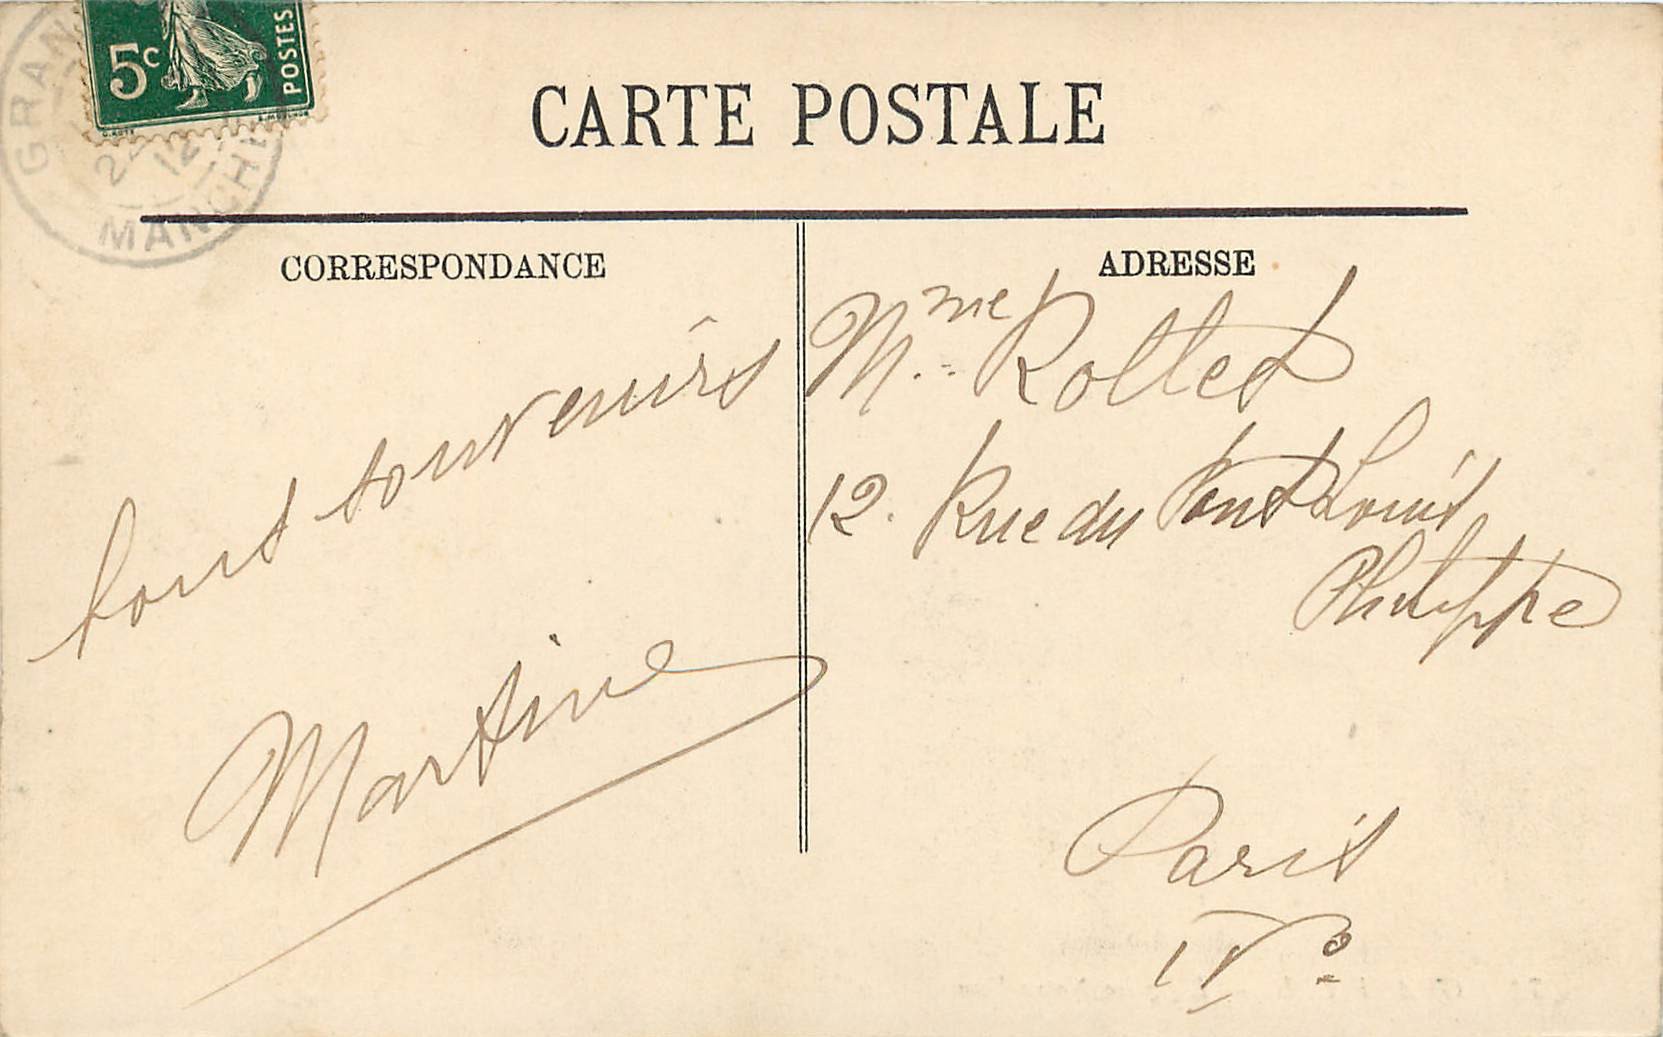 5c
POSTES
GRAN
2
12
MANCHE
CARTE POSTALE
CORRESPONDANCE
ADRESSE
souvenirs
Martine
Mme Rollet
12. Rue du Pont Louis
Philippe
Paris
IVe